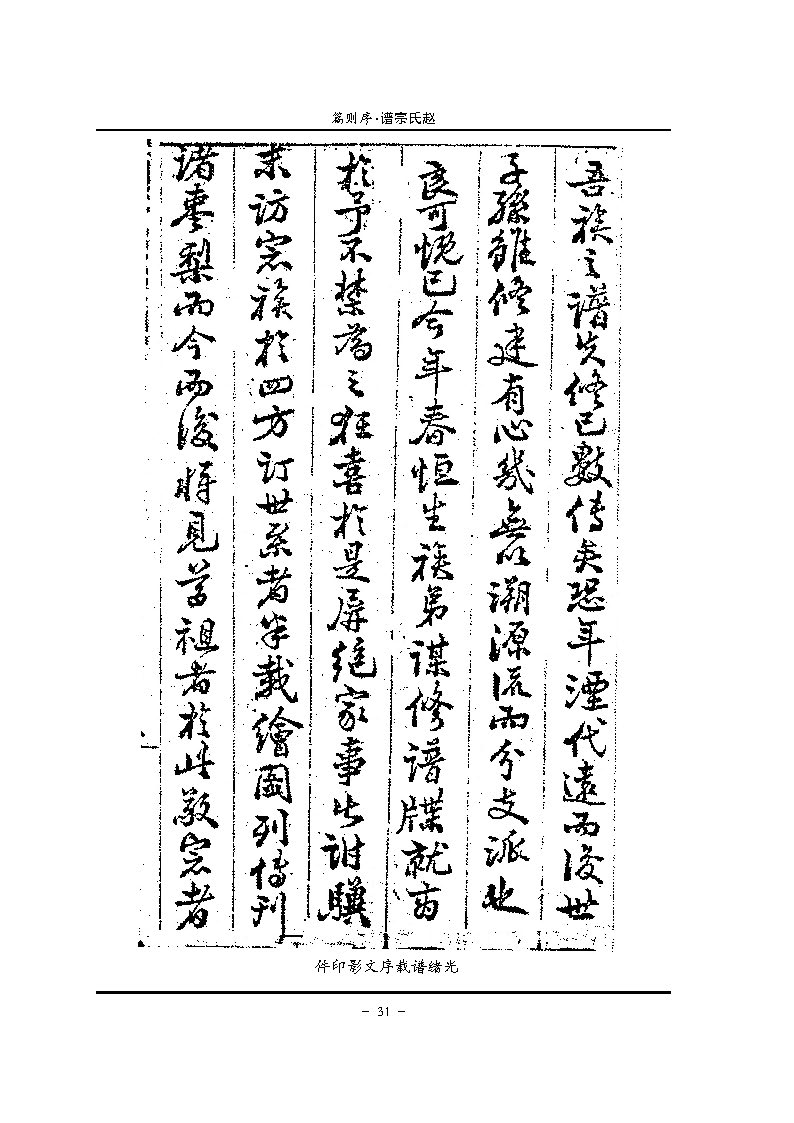 赵氏宗谱·序则篇
吾族之譜失修已數傳矣恐年湮代遠而後世
子孫雖修建有心幾無以溯源流而分支派也
良可慨已今年春恒生族弟謀修譜牒就商
於予不禁為之狂喜於是屏絕家事
來訪宗族於四方訂世系者半載繪圖列傳刊
諸棗梨而今而後將見尊祖者於此敬宗者
光绪谱载序文影印件
- 31 -